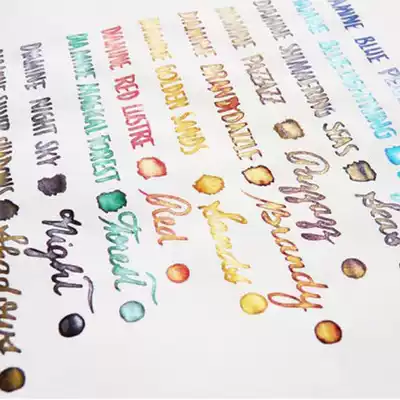 BLUE
DIAMINE BLUE LIGHTNING
DIAMINE SHIMMERING SEAS Seas
DIAMINE PIZZAZZ
DIAMINE BRANDY DAZZLE Brandy
DIAMINE GOLDEN SANDS Sands
DIAMINE RED LUSTRE Red
DIAMINE MAGICAL FOREST Forest
DIAMINE NIGHT SKY Night
Shadows